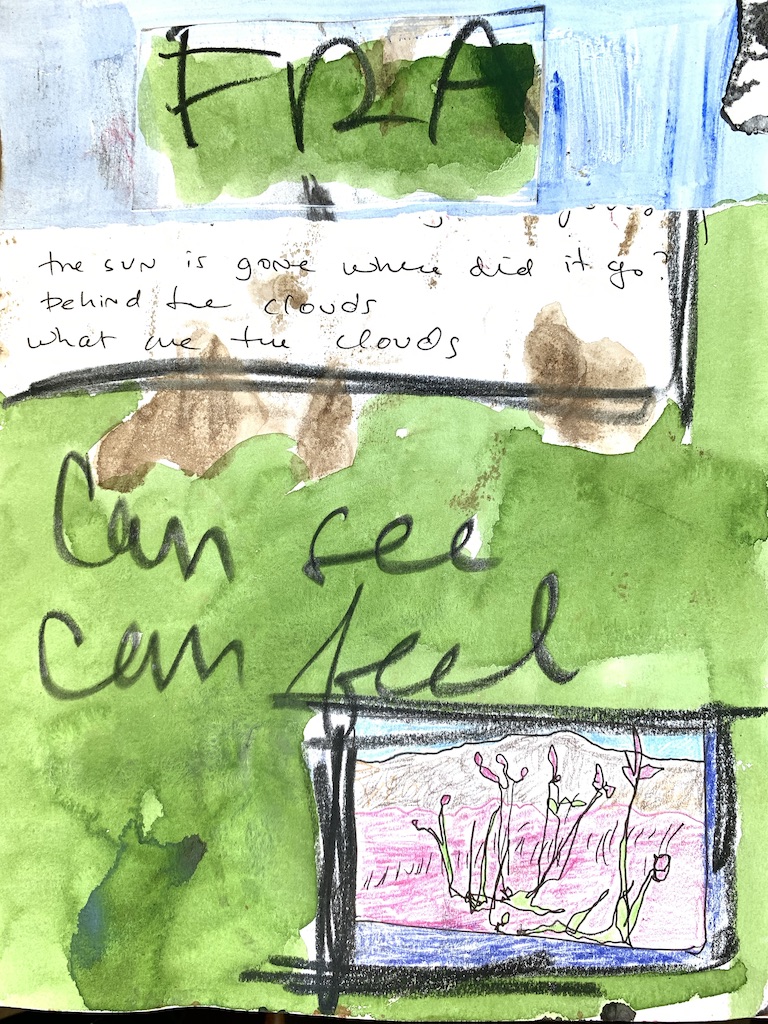 FRA
the sun is gone where did it go?
behind the clouds
what are the clouds
Can see
can feel